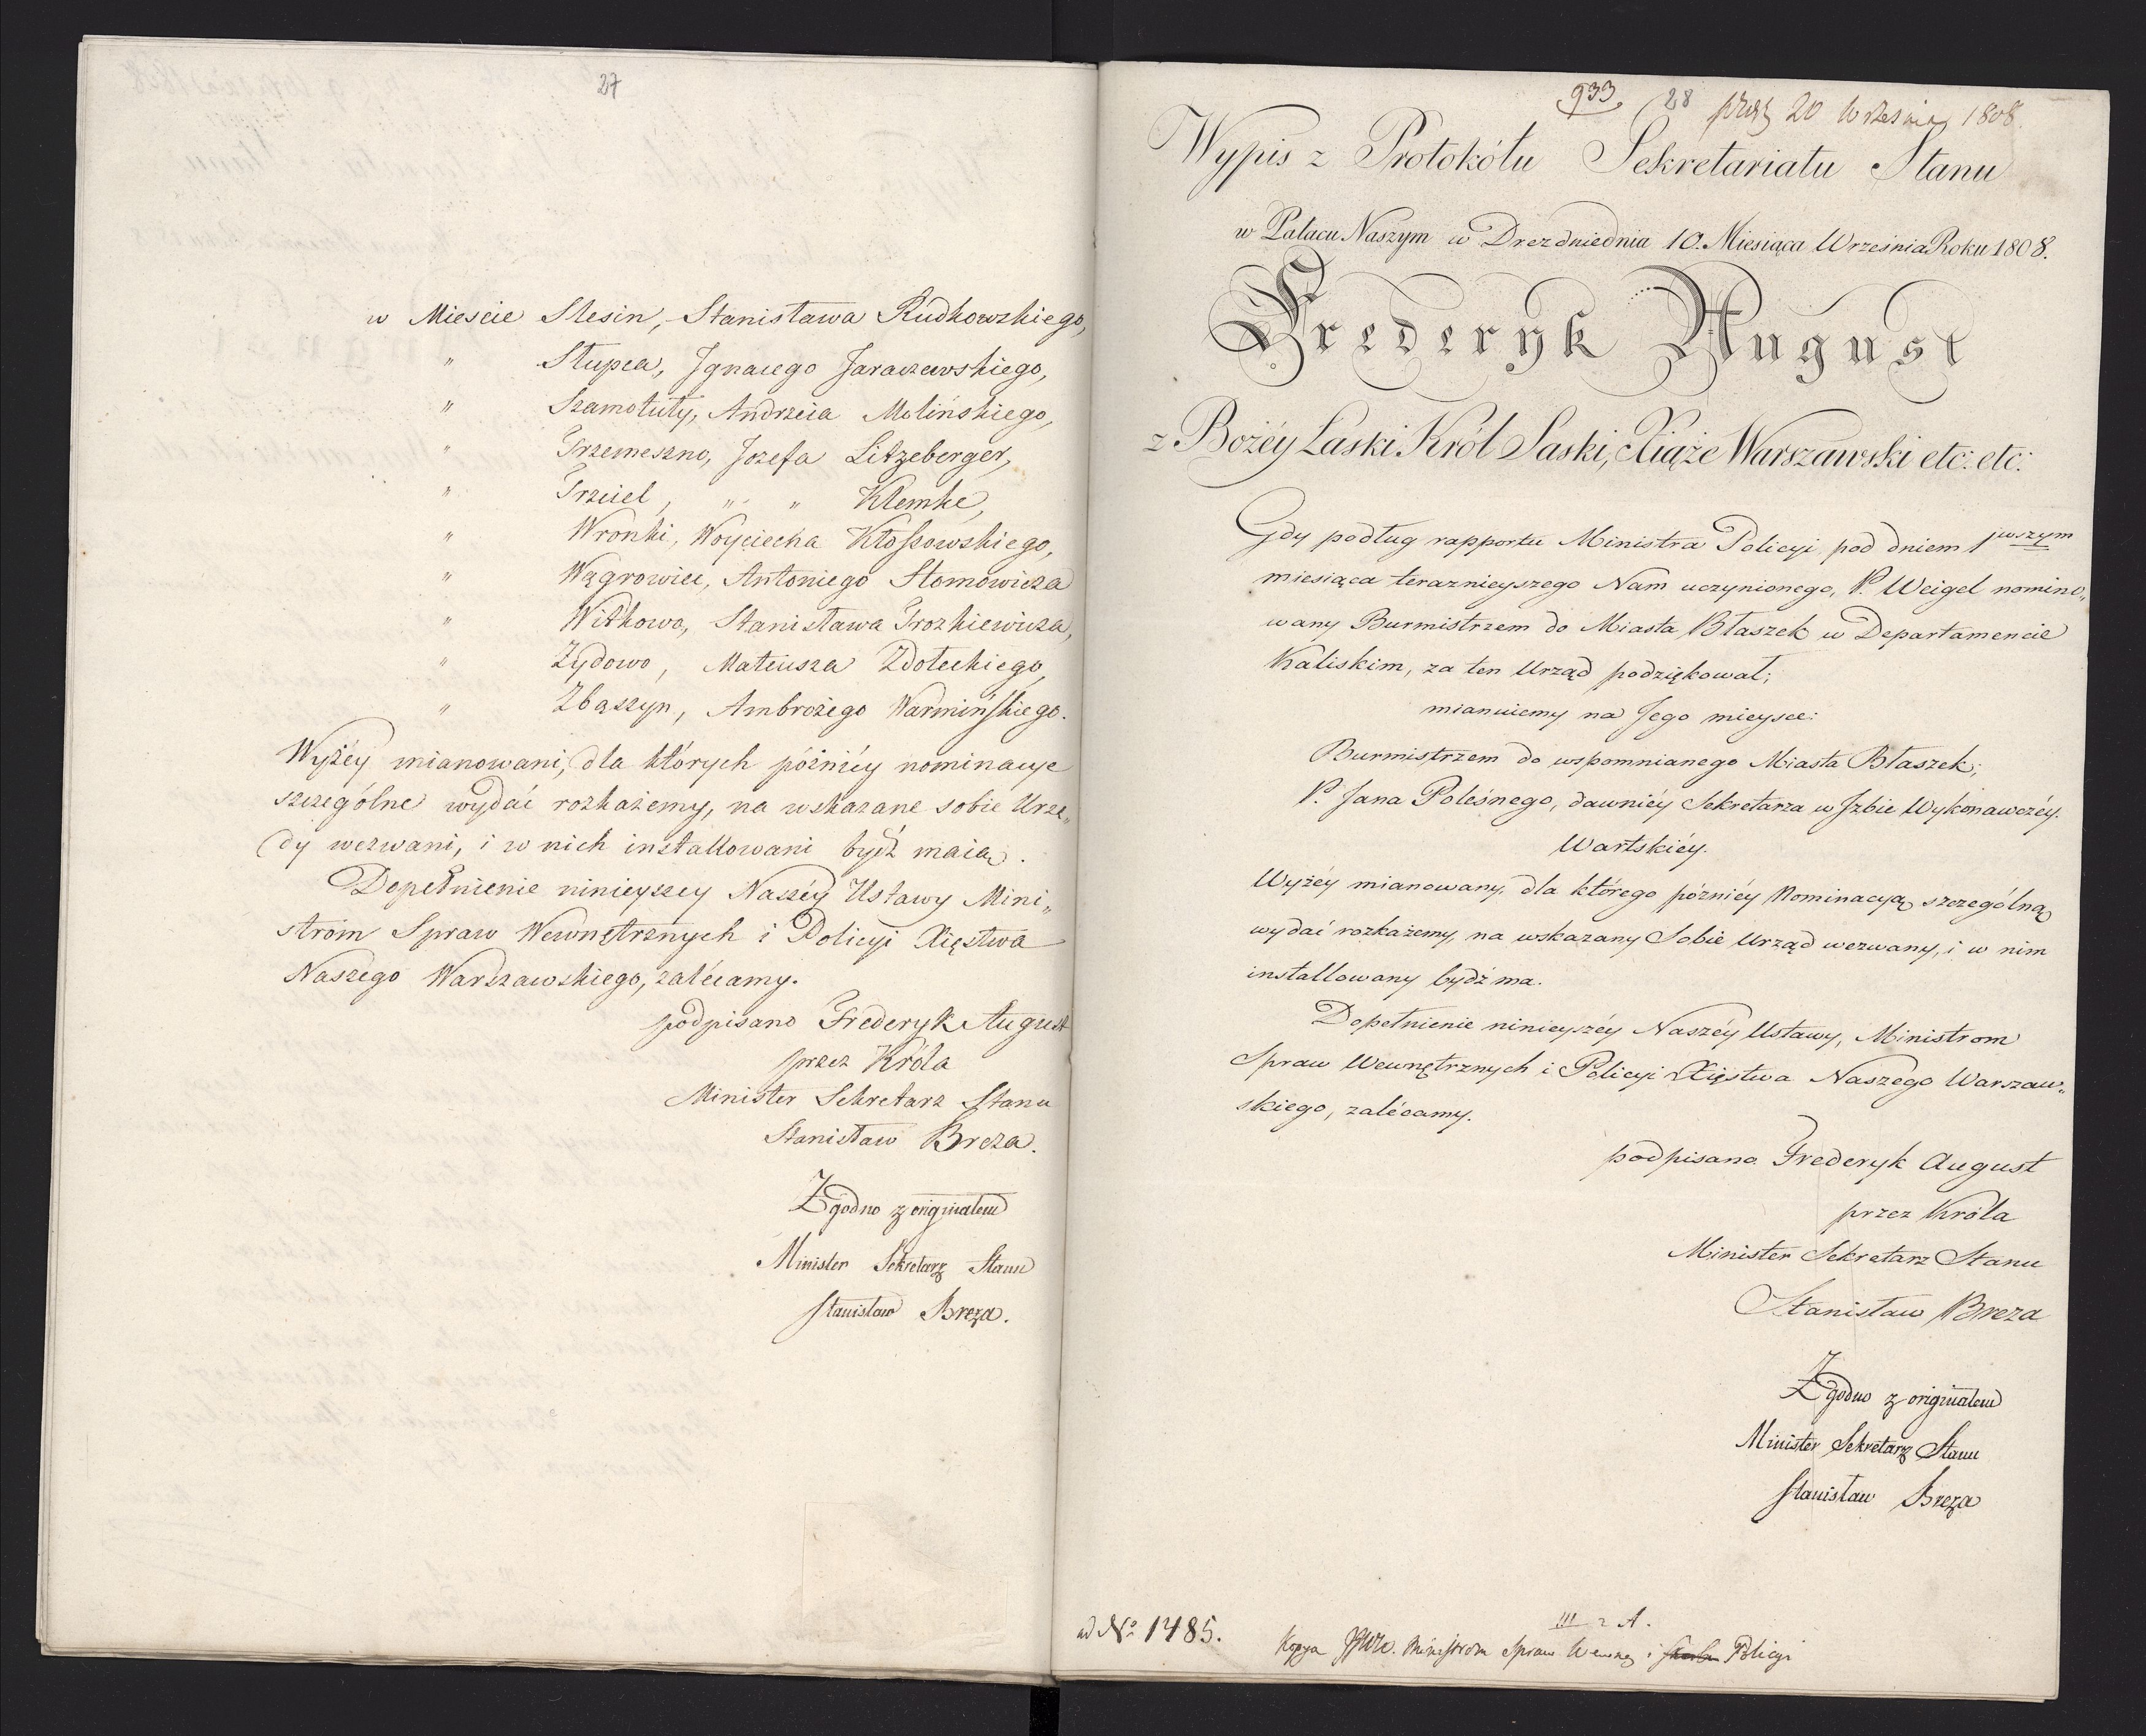 27
w Mieście Slesin, Stanisława Rudkowskiego,
" Słupca, Jgnacego Jaraczewskiego,
" Szamotuły, Andrzeia Molińskiego,
" Trzemeszno, Jozefa Litzeberger,
" Trzciel, " " Klemke,
" Wronki, Woyciecha Kłossowskiego,
" Wągrowiec, Antoniego Stomowicza
" Witkowo, Stanisława Trozkiewicza,
" Żydowo, Mateusza Zdoleckiego,
" Zbąszyn, Ambrożego Warmińskiego.
Wyżéy mianowani, dla których późniéy nominacye
szczególne wydać rozkażemy, na wskazane sobie Urzę„
dy wezwani, i w nich installowani bydź maią.
Dopełnienie ninieyszey Naszéy Ustawy Mini„
strom Spraw Wewnętrznych i Policyi Xięstwa
Naszego Warszawskiego, zalécamy.
podpisano Frederyk August
przez Króla
Minister Sekretarz Stanu
Stanisław Breza.
Zgodno z originałem
Minister Sekretarz Stanu
Stanisław Breza.
933 28 20 Września 1808.
Wypis z Protokółu Sekretariatu Stanu
w Pałacu Naszym w Dreznie dnia 10. Miesiąca Września Roku 1808.
Frederyk August
z Bożéy Łaski Król Saski, Xiąże Warszawski etc: etc:
Gdy podług rapportu Ministra Policyi pod dniem 1wszym
miesiąca teraznieyszego Nam uczynionego, P. Weigel nomino„
wany Burmistrzem do Miasta Błaszek w Departamencie
Kaliskim, za ten Urząd podziękował;
mianuiemy na Jego mieysce:
Burmistrzem do wspomnianego Miasta Błaszek;
P. Jana Poleśnego, dawniéy Sekretarza w Jzbie Wykonawczéy
Wartskiéy.
Wyżéy mianowany, dla którego późniéy Nominacyą szczególną
wydać rozkażemy, na wskazany Sobie Urząd wezwany, i w nim
installowany bydź ma.
Dopełnienie ninieyszéy Naszéy Ustawy, Ministrom
Spraw Wewnętrznych i Policyi Xięstwa Naszego Warszaw„
skiego, zalécamy.
podpisano Frederyk August
przez Króla
Minister Sekretarz Stanu
Stanisław Breza
Zgodno z originałem
Minister Sekretarz Stanu
Stanisław Breza
ad No 1485.
III 2 A.
Kopya JJWW. Ministrom Spraw Wewnę i Policyi